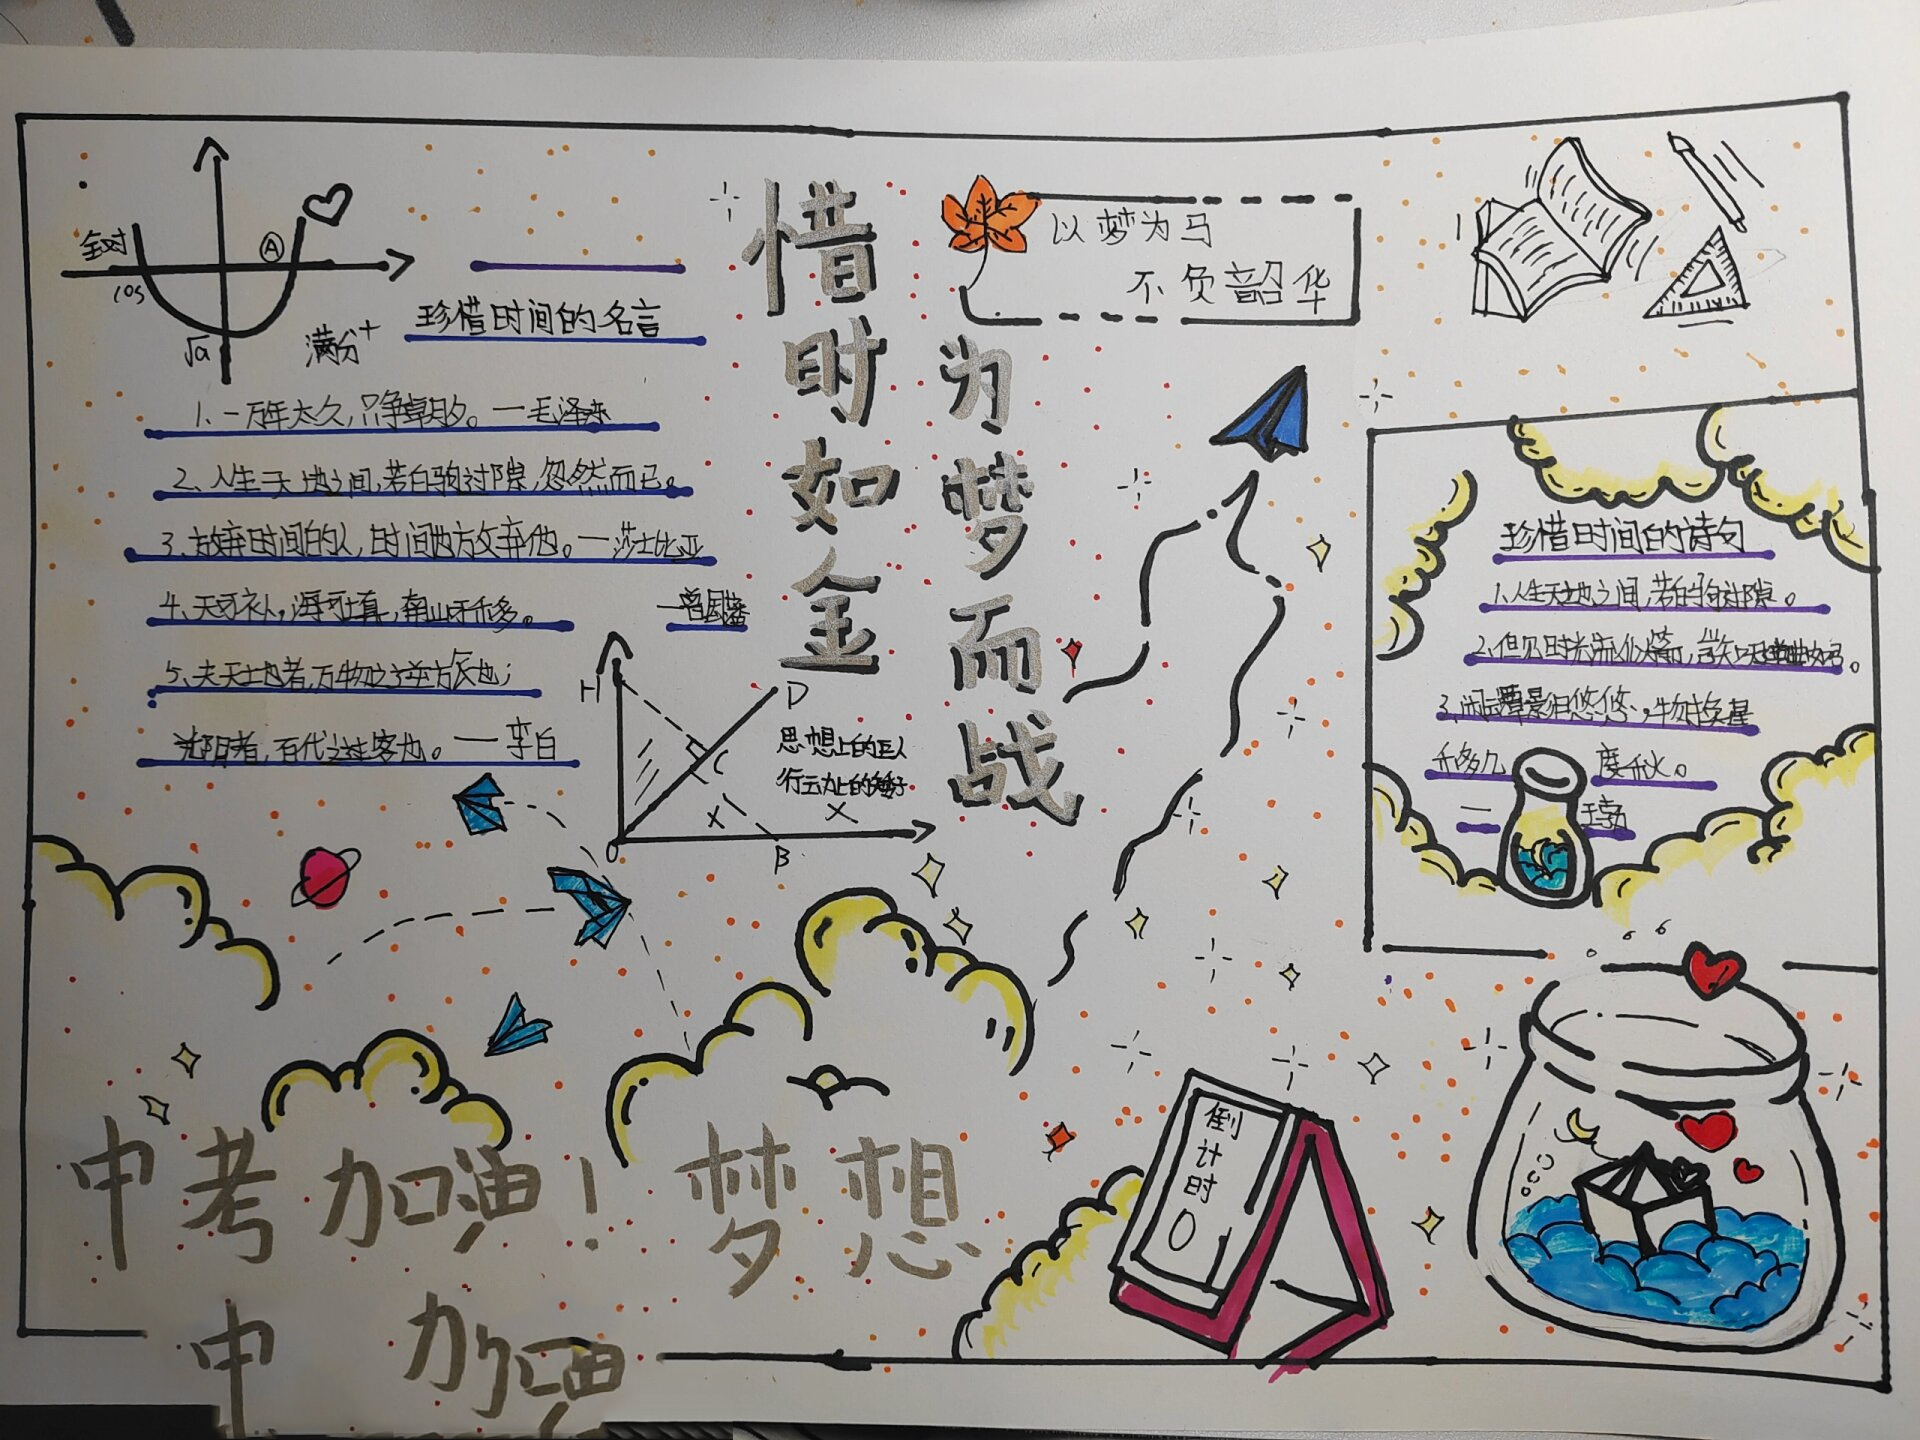 全对
cos
A
√a
满分+
珍惜时间的名言
1、一万年太久，只争朝夕。—毛泽东
2、人生天地之间，若白驹过隙，忽然而已。
3、放弃时间的人，时间也放弃他。—莎士比亚
4、天可补，海可填，南山可移。
—曾国藩
5、夫天地者，万物之逆旅也；
光阴者，百代之过客也。—李白
H
D
C
X
O
B
X
思想上的巨人
行动上的矮子
惜时如金
为梦而战
以梦为马
不负韶华
珍惜时间的诗句
1、人生天地之间，若白驹过隙。
2、但见时光流似箭，岂知天道曲如弓。
3、闲云潭影日悠悠，物换星
移几度秋。
—王勃
中考加油！梦想
倒计时
0
中 加油